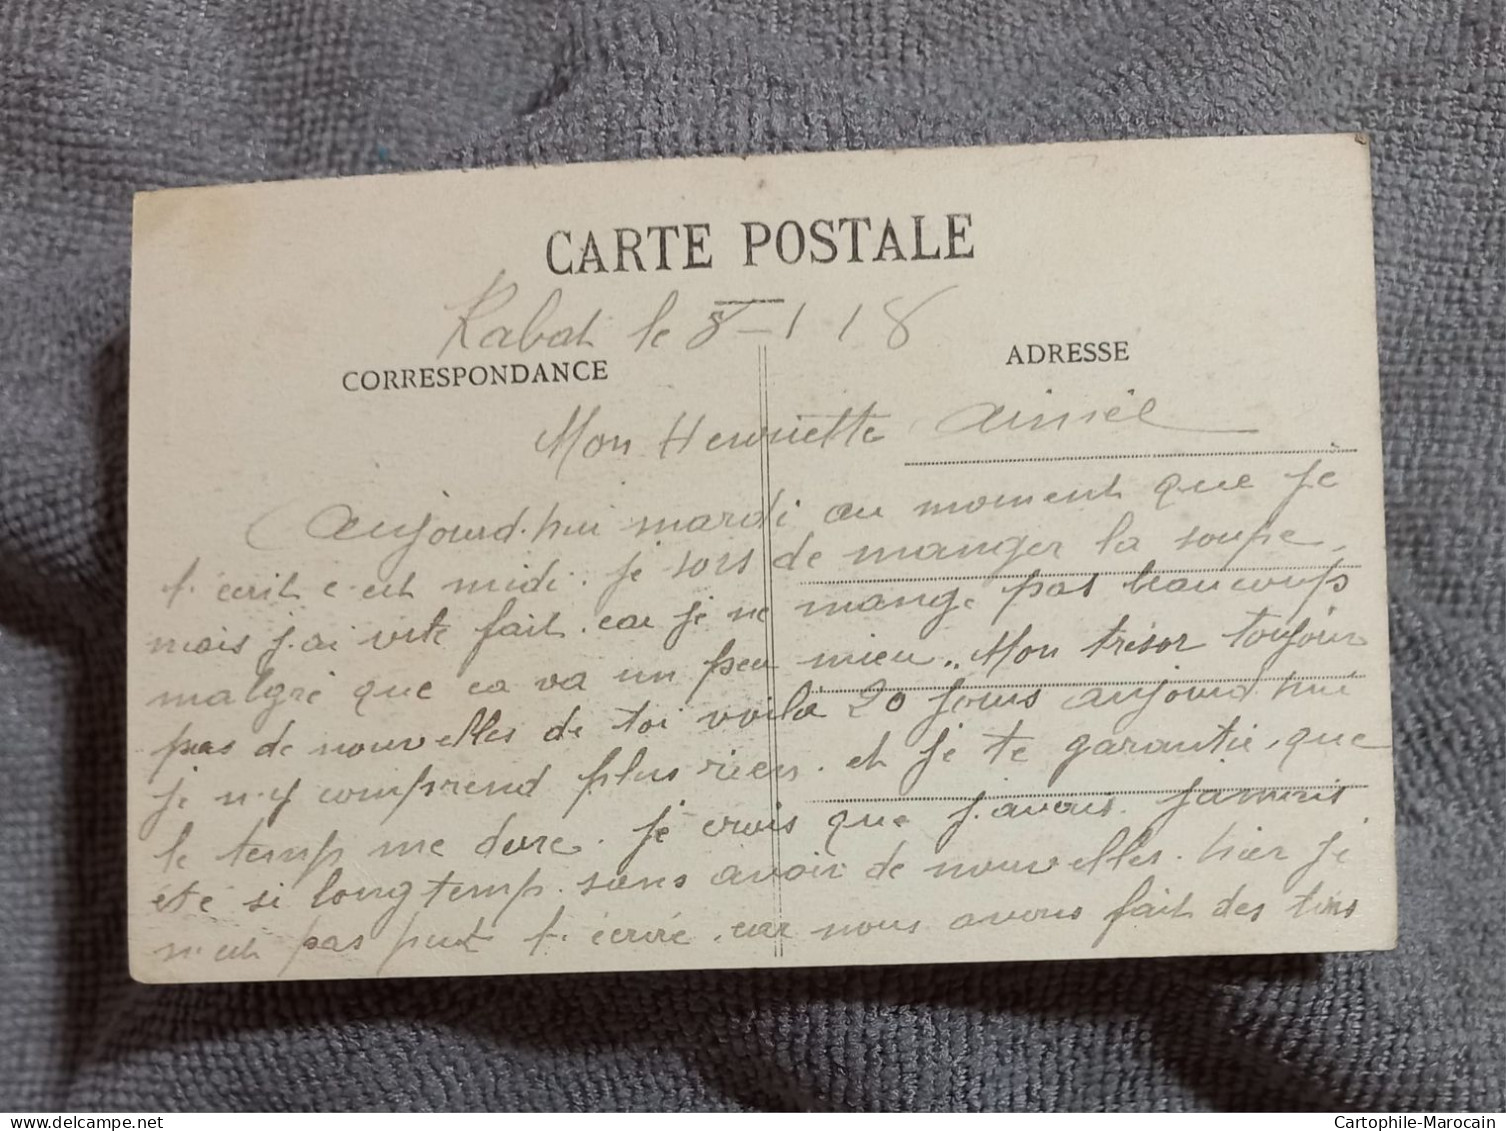 CARTE POSTALE
Rabat le 8-1 18
CORRESPONDANCE
ADRESSE
Mon Henriette aimée
Aujourd.hui mardi au moment que je
t.écrit c.est midi. je sors de manger la soupe,
mais j.ai vite fait. car je ne mange pas beaucoup
malgré que ca va un peu mieu.. Mon trésor toujour
pas de nouvelles de toi voilà 20 jours aujourd hui
je n.y comprend plus rien. et je te garantie, que
le temp me dure. je crois que j.avais jamais
été si longtemp. sans avoir de nouvelles. hier je
n.est pas put t.écrire. car nous avons fait des tirs
Cartophile-Marocain